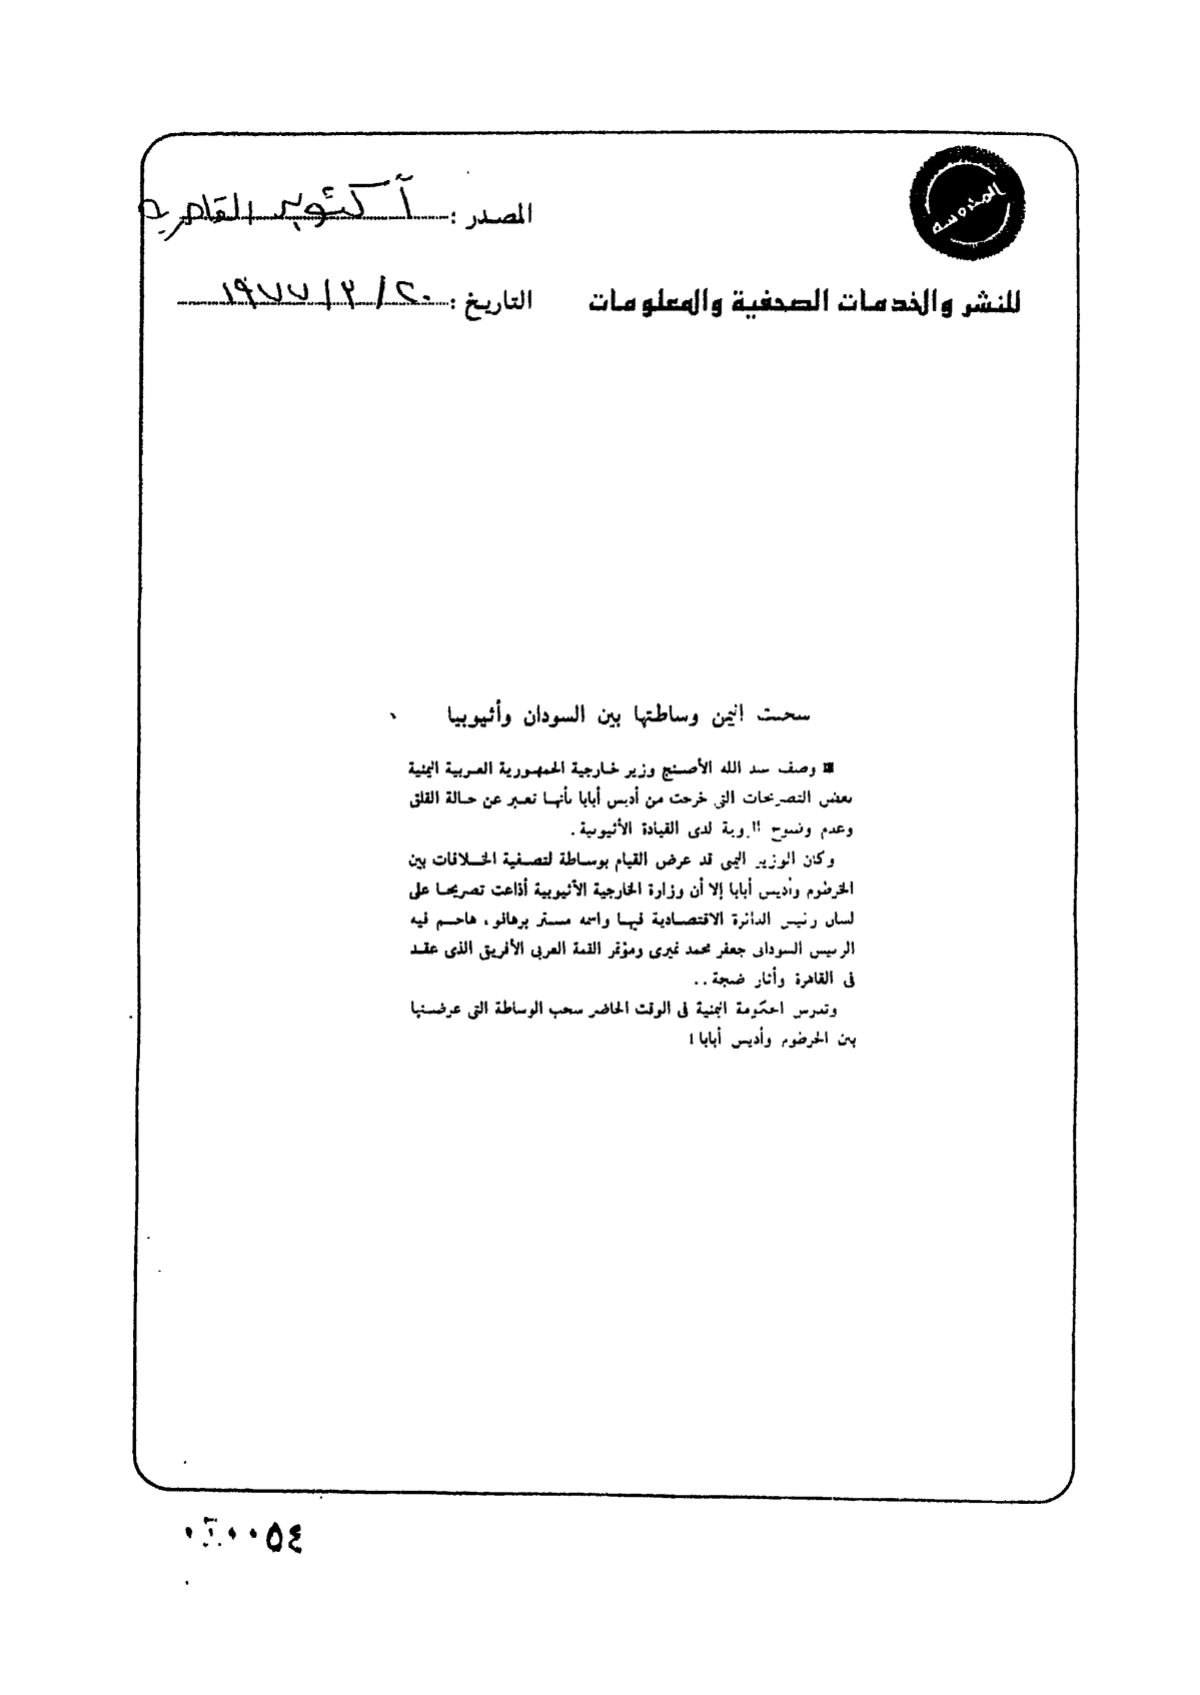 المصدر : أكتوبر القاهرية
التاريخ : ٢٠/٣/١٩٧٧
للنشر والخدمات الصحفية والمعلومات
سحبت اليمن وساطتها بين السودان وأثيوبيا
وصف عبد الله الأصنج وزير خارجية الجمهورية العربية اليمنية
بعض التصريحات التى خرجت من أديس أبابا بأنها تعبر عن حالة القلق
وعدم وضوح الروية لدى القيادة الأثيوبية .
وكان الوزير اليمى قد عرض القيام بوساطة لتصفية الخلافات بين
الخرطوم وأديس أبابا إلا أن وزارة الخارجية الأثيوبية أذاعت تصريحا على
لسان رئيس الدائرة الاقتصادية فيها واسمه مستر برهانو ، هاجم فيه
الرئيس السودانى جعفر محمد نميرى ومؤتمر القمة العربى الأفريقى الذى عقد
فى القاهرة وأثار ضجة . .
وتدرس الحكومة اليمنية فى الوقت الحاضر سحب الوساطة التى عرضتها
بين الخرطوم وأديس أبابا !